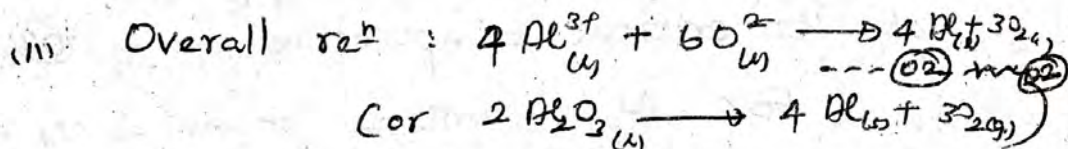 (iii) Overall reⁿ : 4 Al³⁺(l) + 6O²⁻(l) → 4 Al(l) + 3O₂(g)
---- 02 ---- 02
(or 2 Al₂O₃(l) → 4 Al(l) + 3O₂(g))